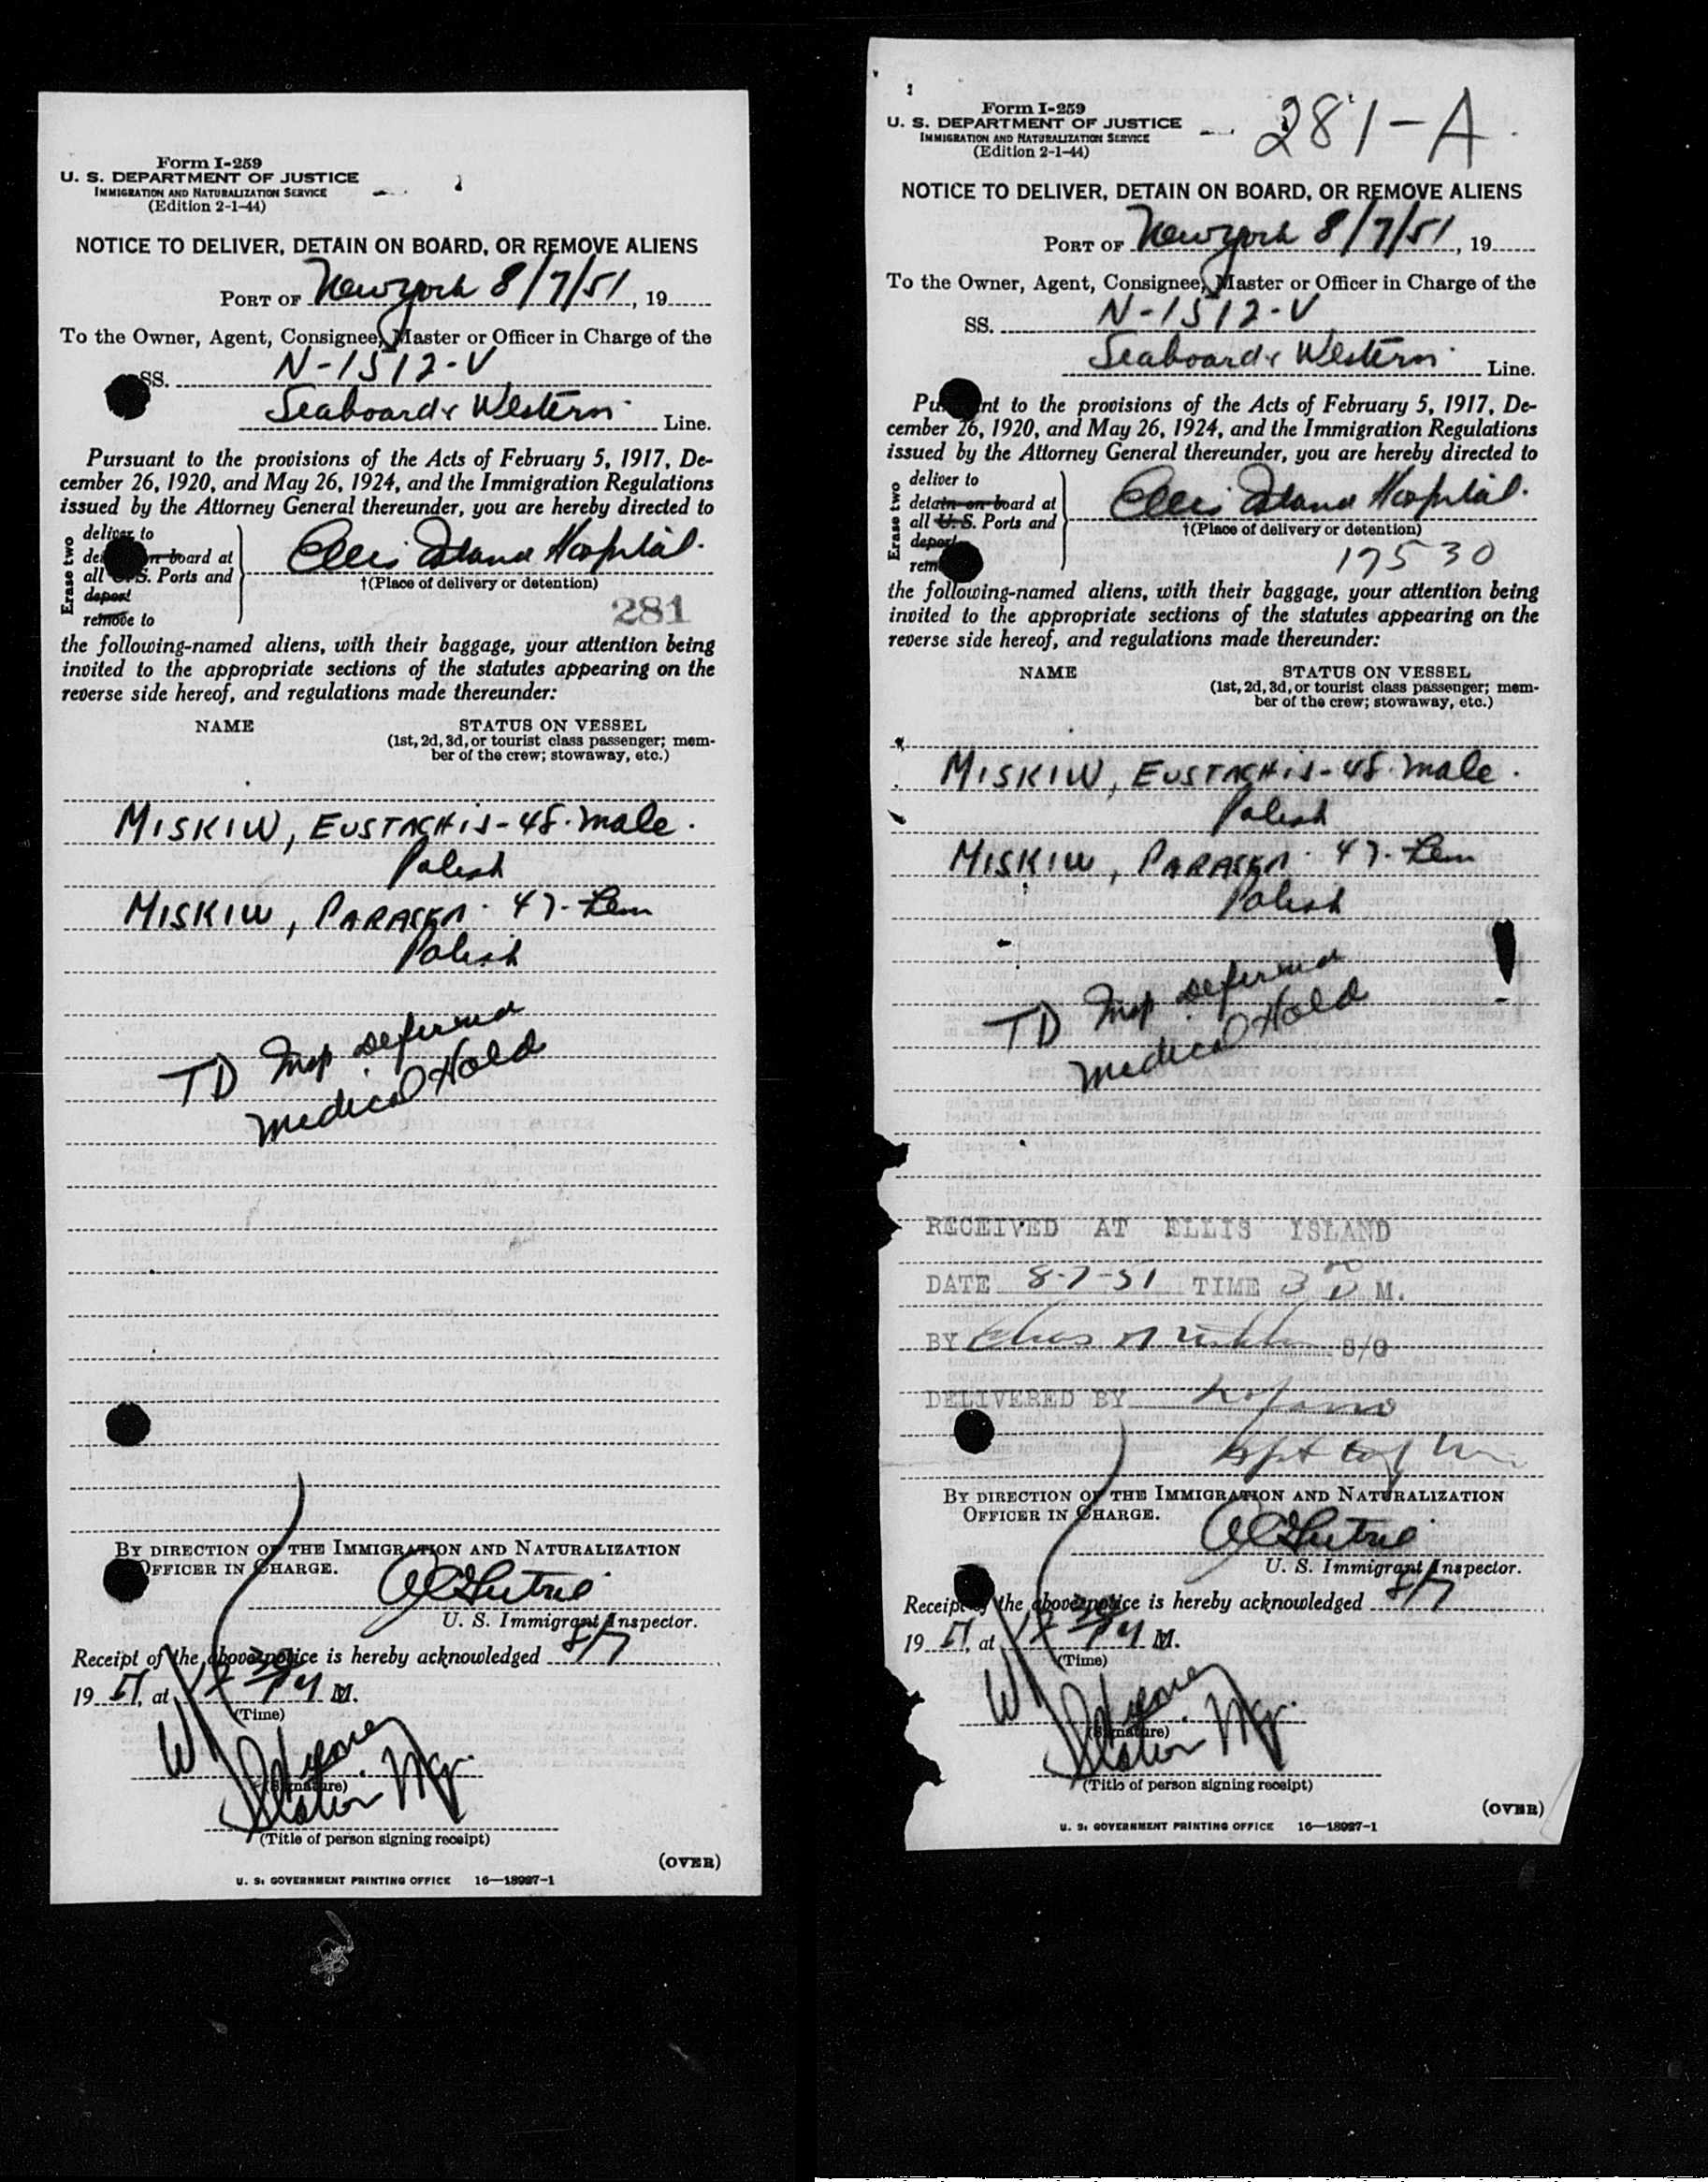 Form I-259
U. S. DEPARTMENT OF JUSTICE
IMMIGRATION AND NATURALIZATION SERVICE
(Edition 2-1-44)
NOTICE TO DELIVER, DETAIN ON BOARD, OR REMOVE ALIENS
PORT OF New York 8/7/51, 19
To the Owner, Agent, Consignee, Master or Officer in Charge of the
SS. N-1512-V
Seaboard & Western Line.
Pursuant to the provisions of the Acts of February 5, 1917, De-
cember 26, 1920, and May 26, 1924, and the Immigration Regulations
issued by the Attorney General thereunder, you are hereby directed to
Erase two
deliver to
board at
all U. S. Ports and
deport
remove to
Ellis Island Hospital.
†(Place of delivery or detention)
281
the following-named aliens, with their baggage, your attention being
invited to the appropriate sections of the statutes appearing on the
reverse side hereof, and regulations made thereunder:
NAME STATUS ON VESSEL
(1st, 2d, 3d, or tourist class passenger; mem-
ber of the crew; stowaway, etc.)
MISKIW, EUSTACHIJ - 48. male.
Polish
MISKIW, PARASKA. 47. Fem
Polish
TD Insp deferred
medical Hold
BY DIRECTION OF THE IMMIGRATION AND NATURALIZATION
OFFICER IN CHARGE.
U. S. Immigrant Inspector.
Receipt of the above notice is hereby acknowledged 8/7
19 51, at M.
(Time)
(Signature)
Station Mgr.
(Title of person signing receipt)
(OVER)
U. S. GOVERNMENT PRINTING OFFICE 16—18927-1
Form I-259
U. S. DEPARTMENT OF JUSTICE
IMMIGRATION AND NATURALIZATION SERVICE
(Edition 2-1-44)
281-A.
NOTICE TO DELIVER, DETAIN ON BOARD, OR REMOVE ALIENS
PORT OF New York 8/7/51, 19
To the Owner, Agent, Consignee, Master or Officer in Charge of the
SS. N-1512-V
Seaboard & Western Line.
Pursuant to the provisions of the Acts of February 5, 1917, De-
cember 26, 1920, and May 26, 1924, and the Immigration Regulations
issued by the Attorney General thereunder, you are hereby directed to
Erase two
deliver to
detain on board at
all U. S. Ports and
deport
Ellis Island Hospital.
†(Place of delivery or detention)
17530
the following-named aliens, with their baggage, your attention being
invited to the appropriate sections of the statutes appearing on the
reverse side hereof, and regulations made thereunder:
NAME STATUS ON VESSEL
(1st, 2d, 3d, or tourist class passenger; mem-
ber of the crew; stowaway, etc.)
MISKIW, EUSTACHIJ - 48. male.
Polish
MISKIW, PARASKA. 47. Fem
Polish
TD Insp deferred
medical Hold
RECEIVED AT ELLIS ISLAND
DATE 8-7-51 TIME 3 00 P M.
BY Chas S/O
DELIVERED BY
BY DIRECTION OF THE IMMIGRATION AND NATURALIZATION
OFFICER IN CHARGE.
U. S. Immigrant Inspector.
Receipt of the above notice is hereby acknowledged 8/7
19 51, at M.
(Time)
(Signature)
Station Mgr.
(Title of person signing receipt)
(OVER)
U. S. GOVERNMENT PRINTING OFFICE 16—18927-1